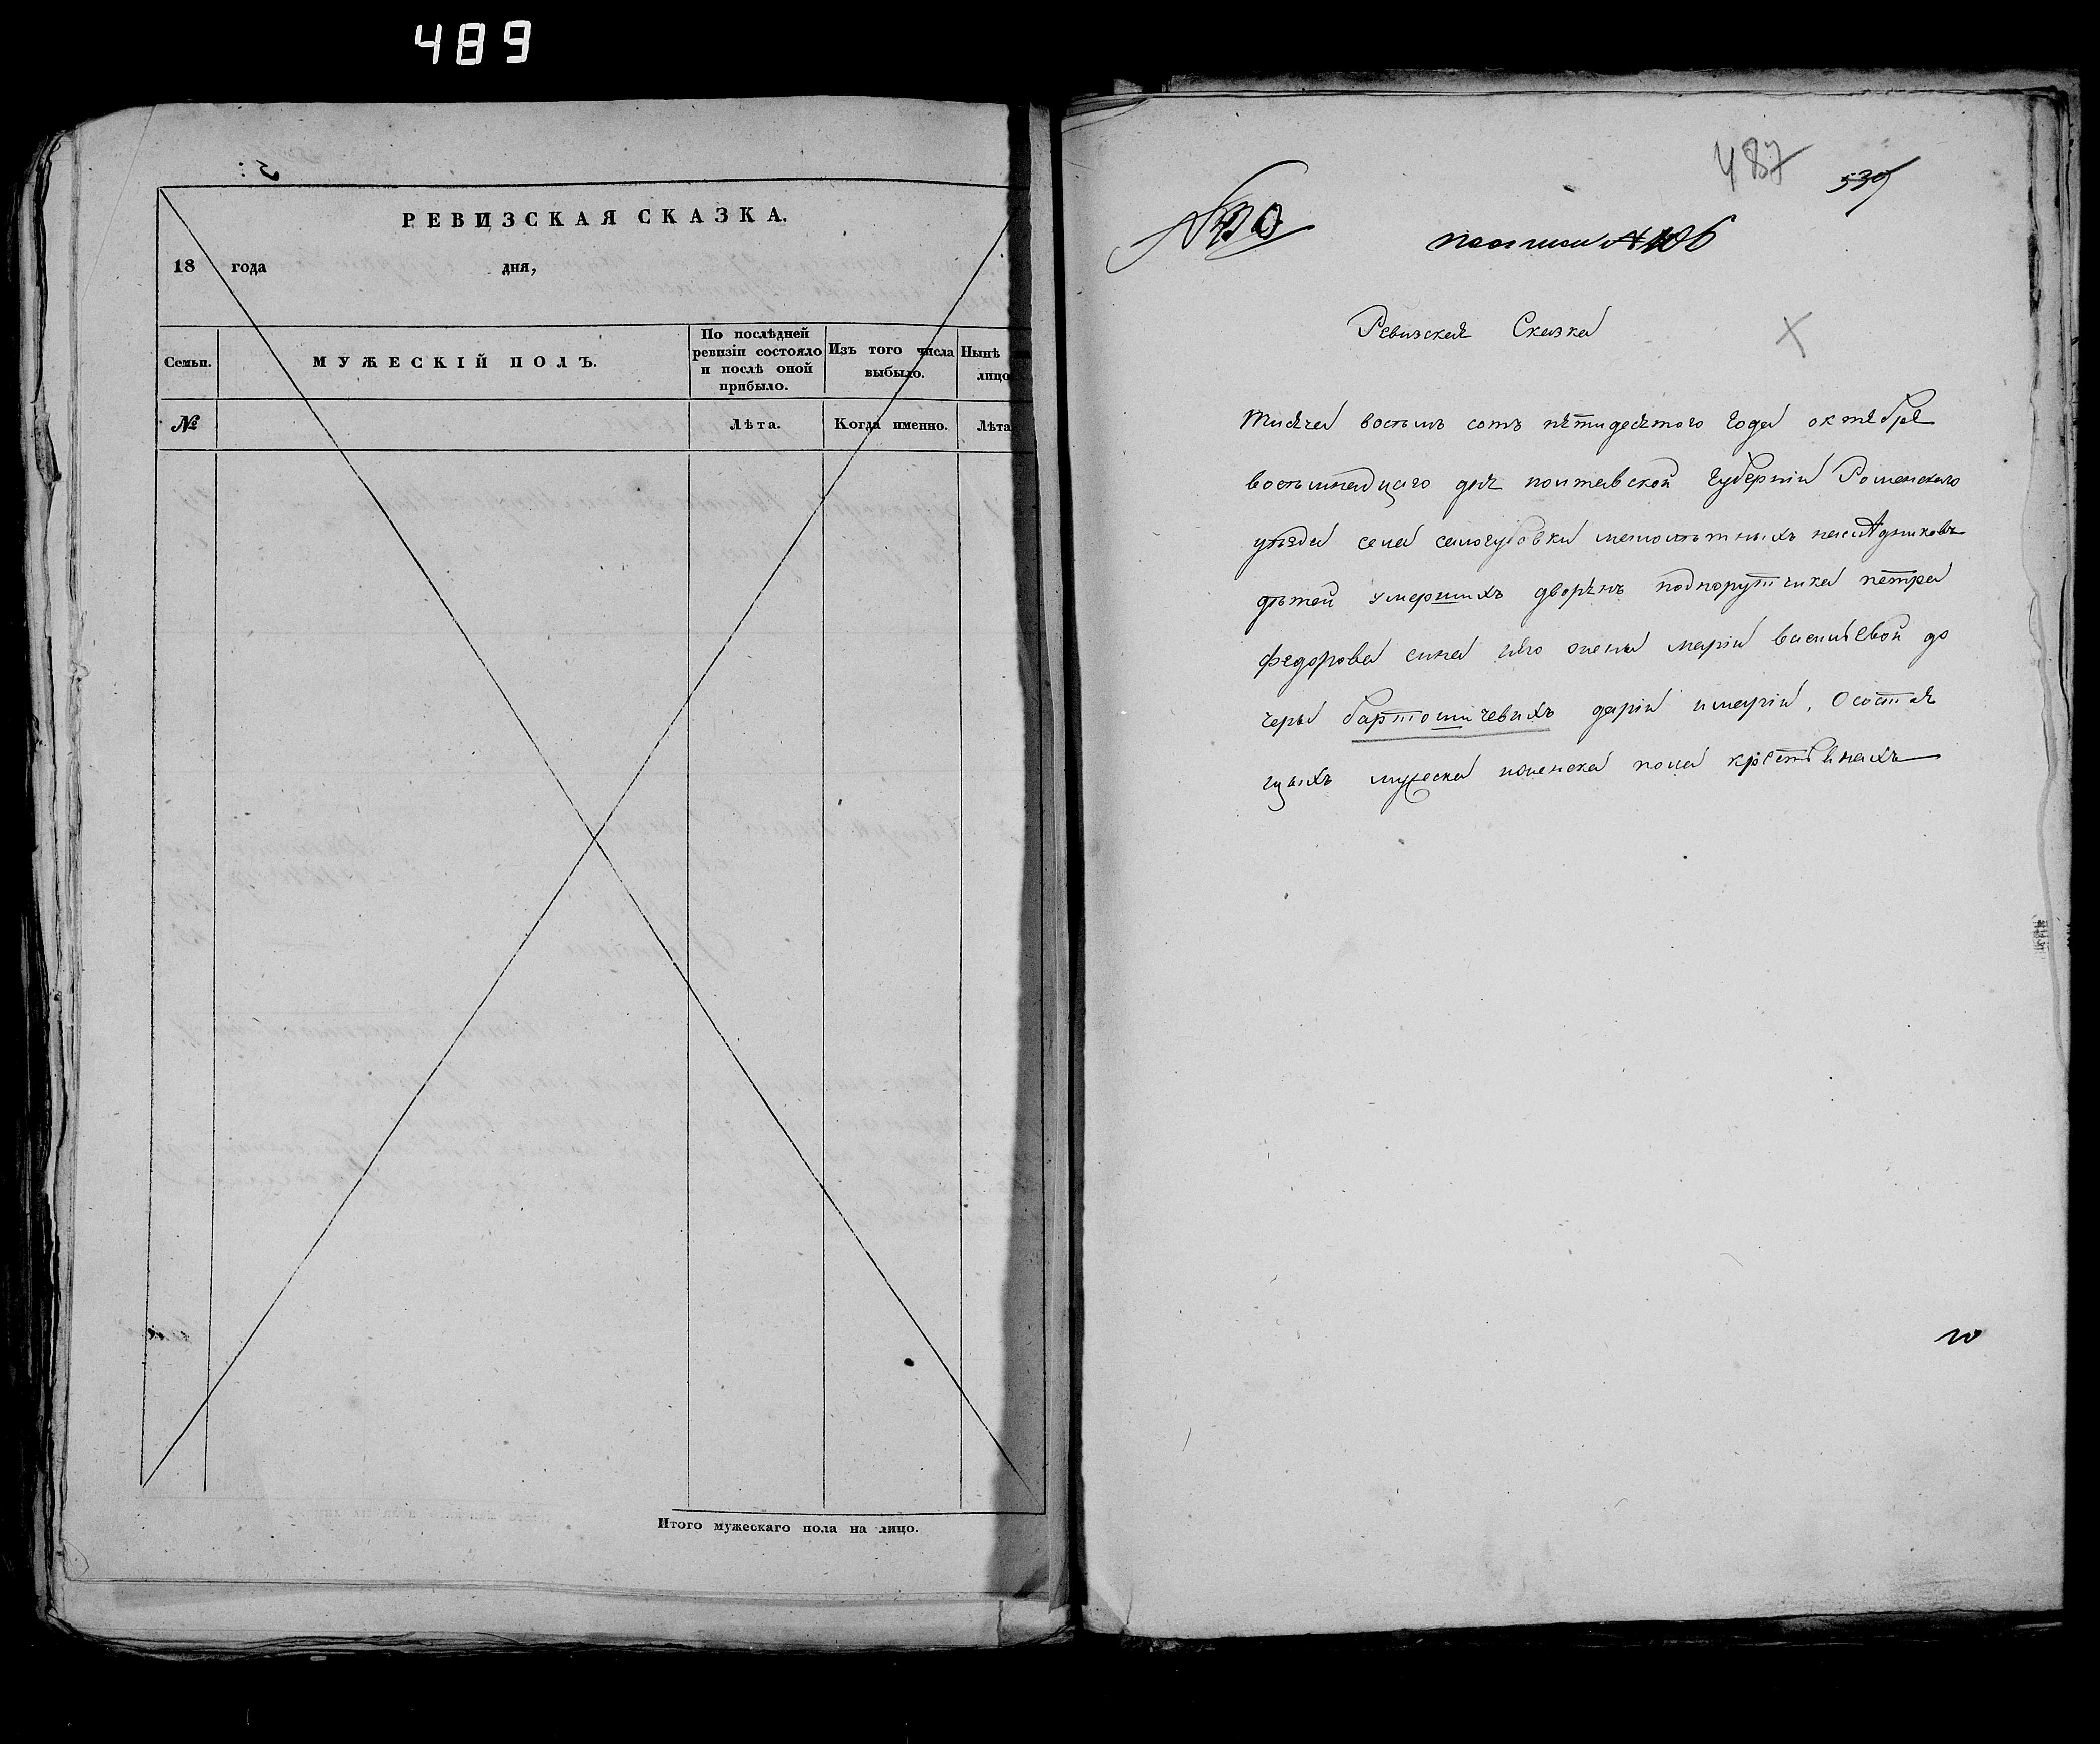 489
РЕВИЗСКАЯ СКАЗКА.
18 года дня,
Семьи.
МУЖЕСКІЙ ПОЛЪ.
По послѣдней
ревизіи состояло
и послѣ оной
прибыло.
Изъ того числа
выбыло.
Нынѣ
лицо
№
Лѣта.
Когда именно.
Лѣта
Итого мужескаго пола на лицо.
487
539
106
Ревизская Сказка
тысяча восѣмъ сотъ пятидесятого года октября
восѣмнадцаго дня полтавской губерніи Роменскаго
уѣзда села самогубовки малолѣтныхъ наслядниковъ
дѣтей умершихъ дворянъ подпорутчика петра
федорова сина и его жены маріи василѣвой до
черы бартошичевихъ даріи и маріи, О состоя
щыхъ мужеска и женска пола крѣстянахъ
10